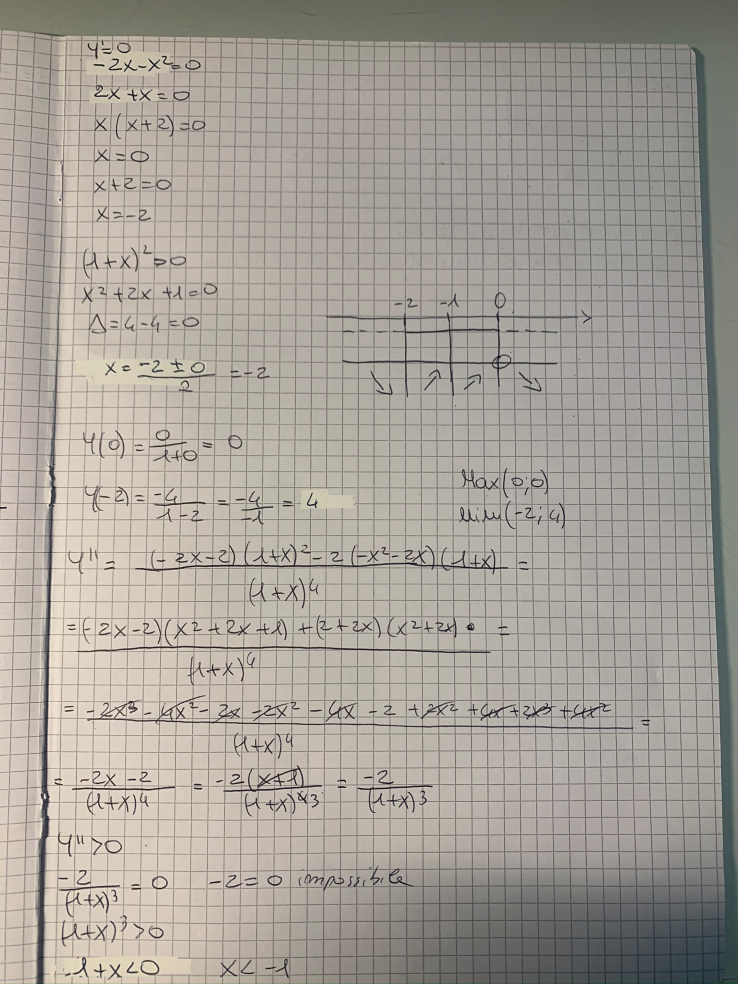 y'=0
-2x-x²=0
2x+x=0
x(x+2)=0
x=0
x+2=0
x=-2
(1+x)²>0
x²+2x+1=0
Δ=4-4=0
x = (-2±0)/2 = -2
-2 -1 0
y(0) = 0/(1+0) = 0
y(-2) = -4/(1-2) = -4/-1 = 4
Max(0;0)
Min(-2;4)
y'' = ((-2x-2)(1+x)²-2(-x²-2x)(1+x))/(1+x)⁴ =
= ((-2x-2)(x²+2x+1)+(2+2x)(x²+2x))/(1+x)⁴ =
= (-2x³-4x²-2x-2x²-4x-2+2x²+4x+2x³+4x²)/(1+x)⁴ =
= (-2x-2)/(1+x)⁴ = -2(x+1)/(1+x)⁴³ = -2/(1+x)³
y''>0
-2/(1+x)³ = 0 -2=0 impossibile
(1+x)³>0
-1+x<0 x<-1